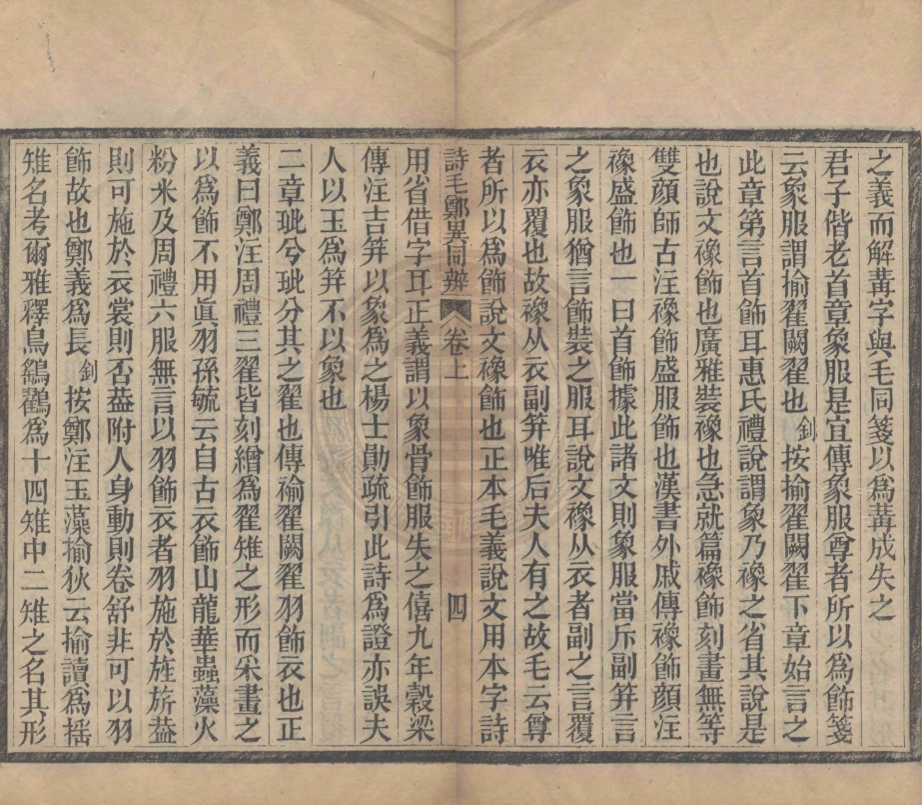 之義而解冓字與毛同箋以爲冓成失之
君子偕老首章象服是宜傳象服尊者所以爲飾箋
云象服謂揄翟闕翟也釗按揄翟闕翟下章始言之
此章第言首飾耳惠氏禮說謂象乃襐之省其說是
也說文襐飾也廣雅裝襐也急就篇襐飾刻畫無等
雙顏師古注襐飾盛服飾也漢書外戚傳襐飾顏注
襐盛飾也一曰首飾據此諸文則象服當斥副笄言
之象服猶言飾裝之服耳說文襐从衣者副之言覆
衣亦覆也故襐从衣副笄唯后夫人有之故毛云尊
者所以爲飾說文襐飾也正本毛義說文用本字詩
詩毛鄭異同辨 卷上 四
用省借字耳正義謂以象骨飾服失之僖九年穀梁
傳注吉笄以象爲之楊士勛疏引此詩爲證亦誤夫
人以玉爲笄不以象也
二章玼兮玼兮其之翟也傳褕翟闕翟羽飾衣也正
義曰鄭注周禮三翟皆刻繒爲翟雉之形而采畫之
以爲飾不用眞羽孫毓云自古衣飾山龍華蟲藻火
粉米及周禮六服無言以羽飾衣者羽施於旌旂葢
則可施於衣裳則否葢附人身動則卷舒非可以羽
飾故也鄭義爲長釗按鄭注玉藻揄狄云揄讀爲搖
雉名考爾雅釋鳥鷂鸛爲十四雉中二雉之名其形